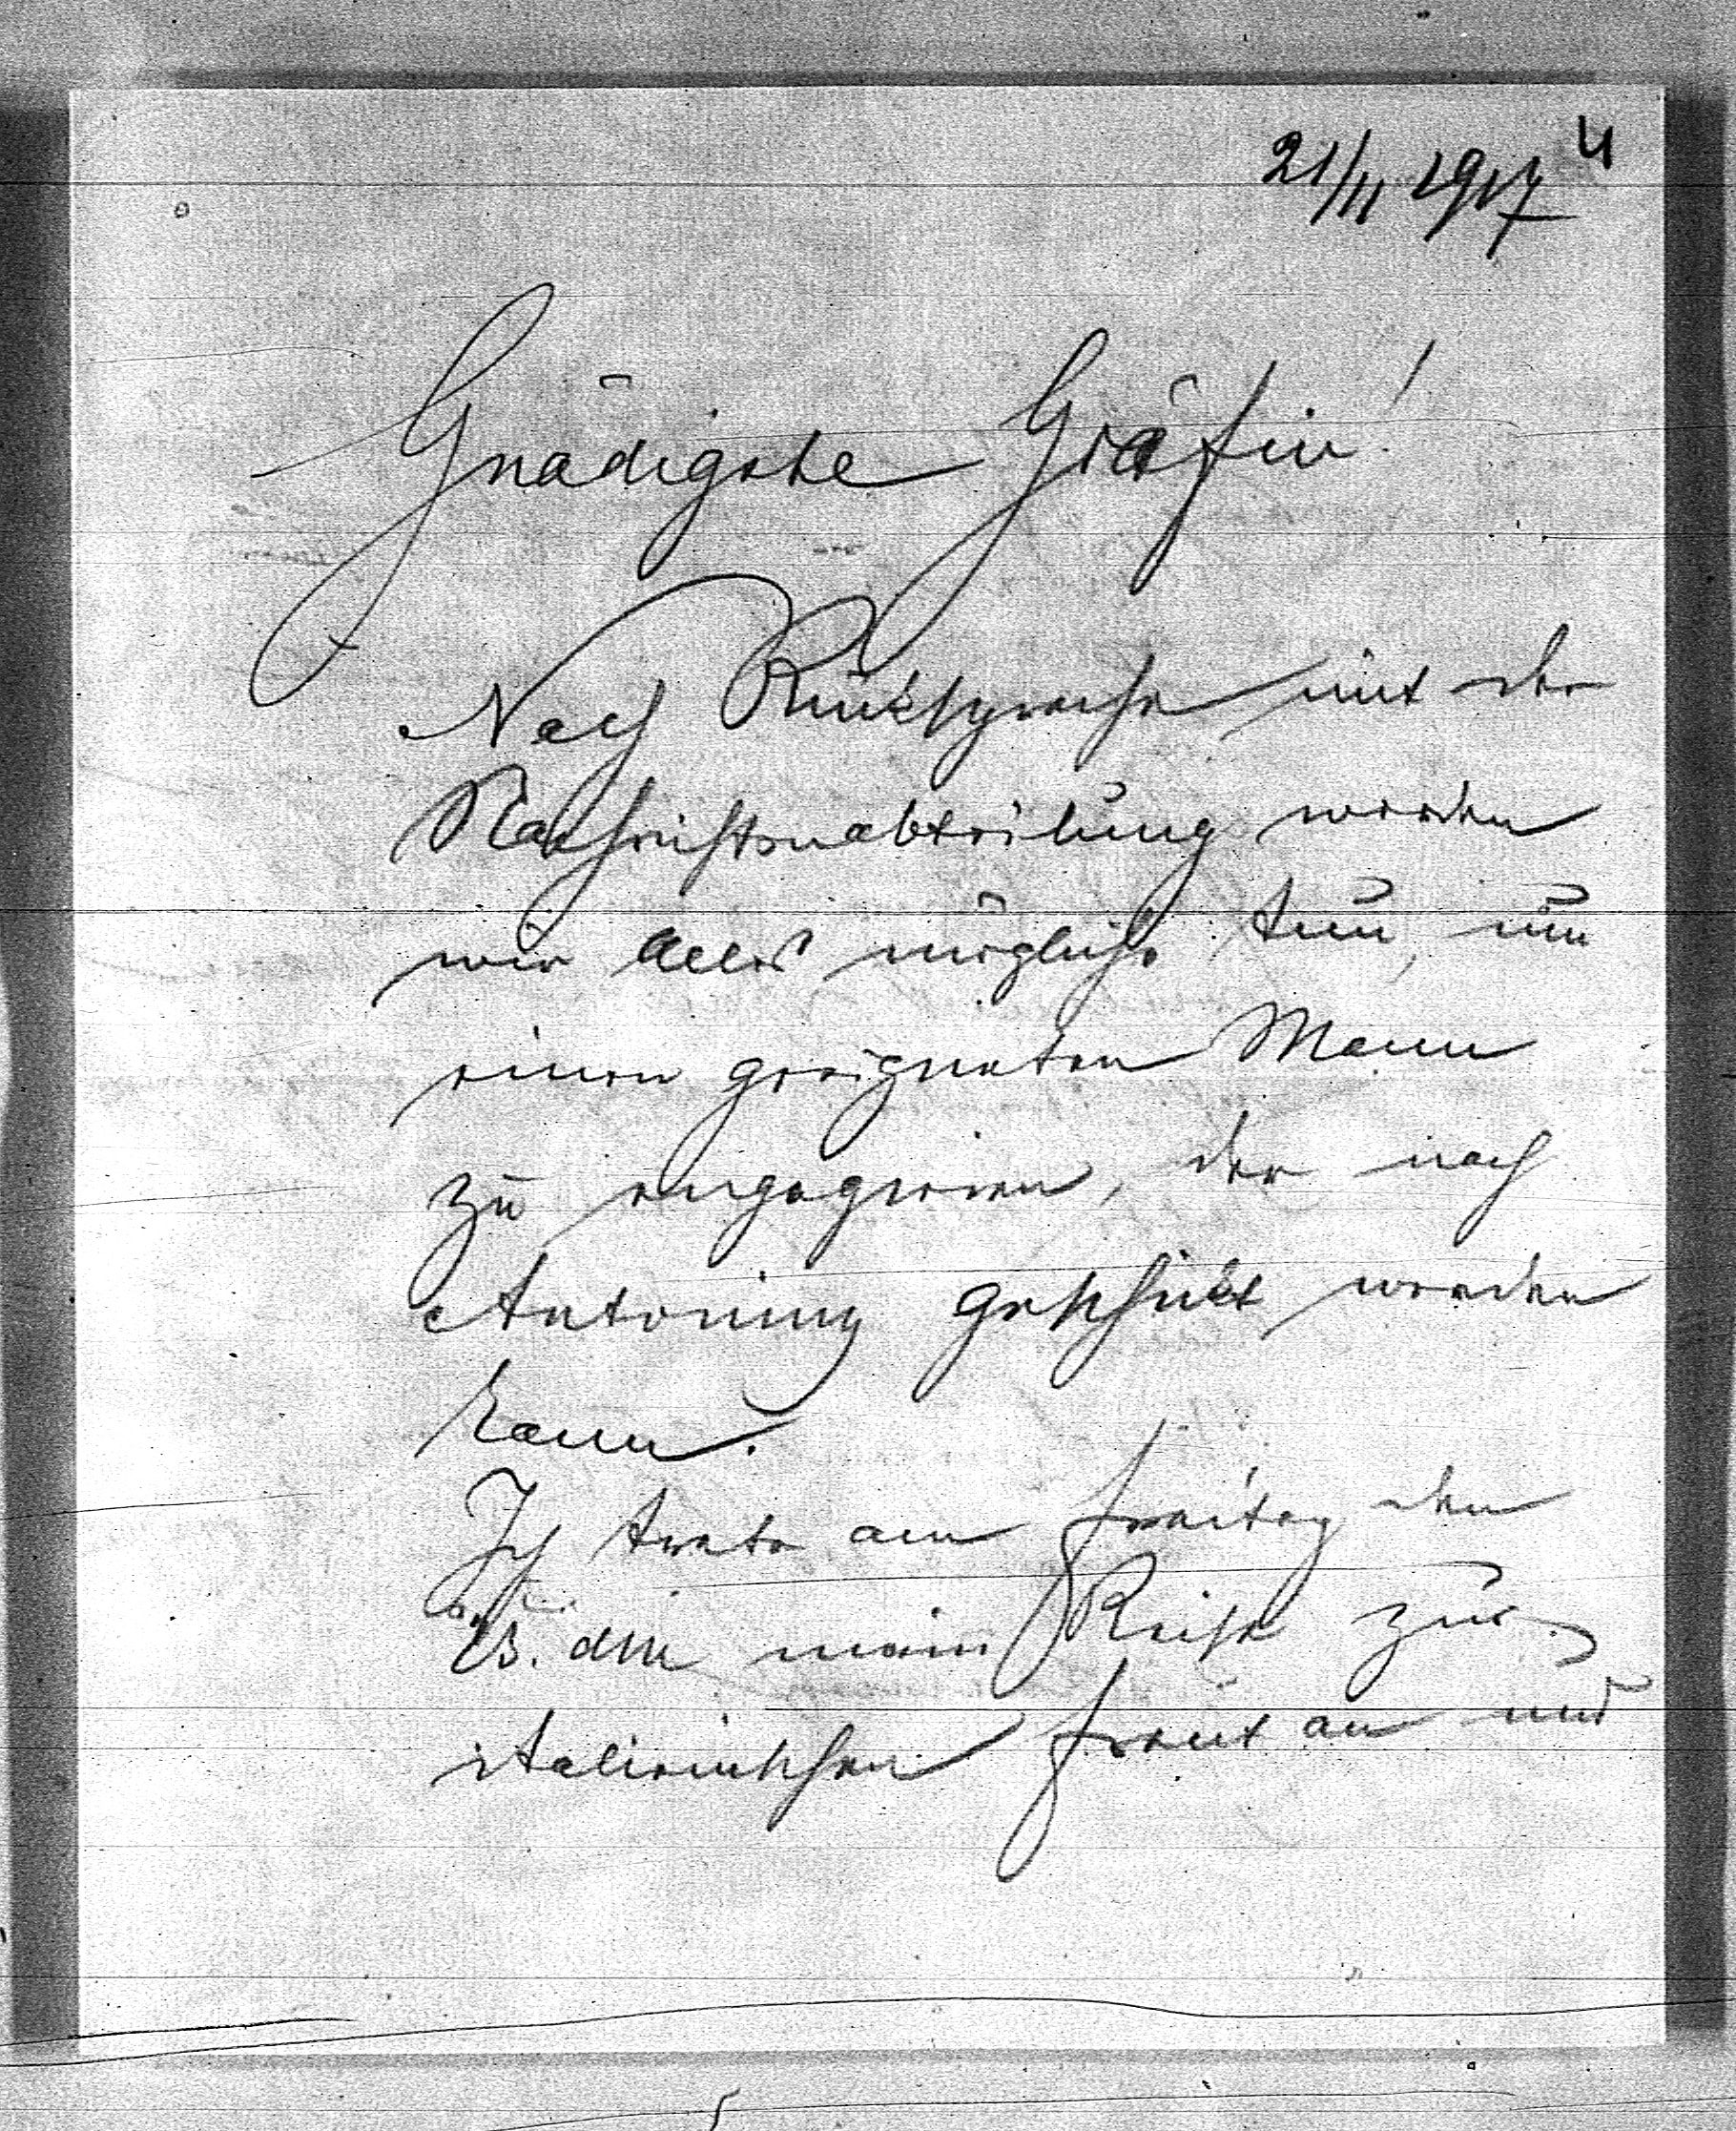 21/II 1917
Gnädigste Gräfin!
Nach Rücksprache mit der
Nachrichtenabteilung werden
wir Alles mögliche tun, um
einen geeigneten Mann
zu engagieren, der nach
Antoniny geschickt werden
kann.
Ich trete am Freitag den
23. dM meine Reise zur
italienischen Front an und